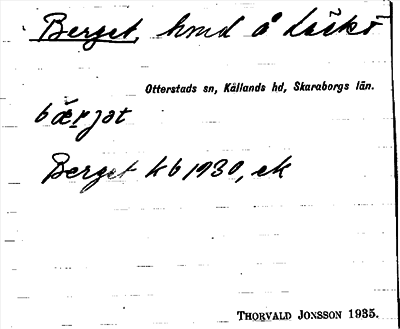 Berget, hmd å Läckö
Otterstads sn, Kållands hd, Skaraborgs län.
bæ̌rjət
Berget kb 1930, ek
THORVALD JONSSON 1935.